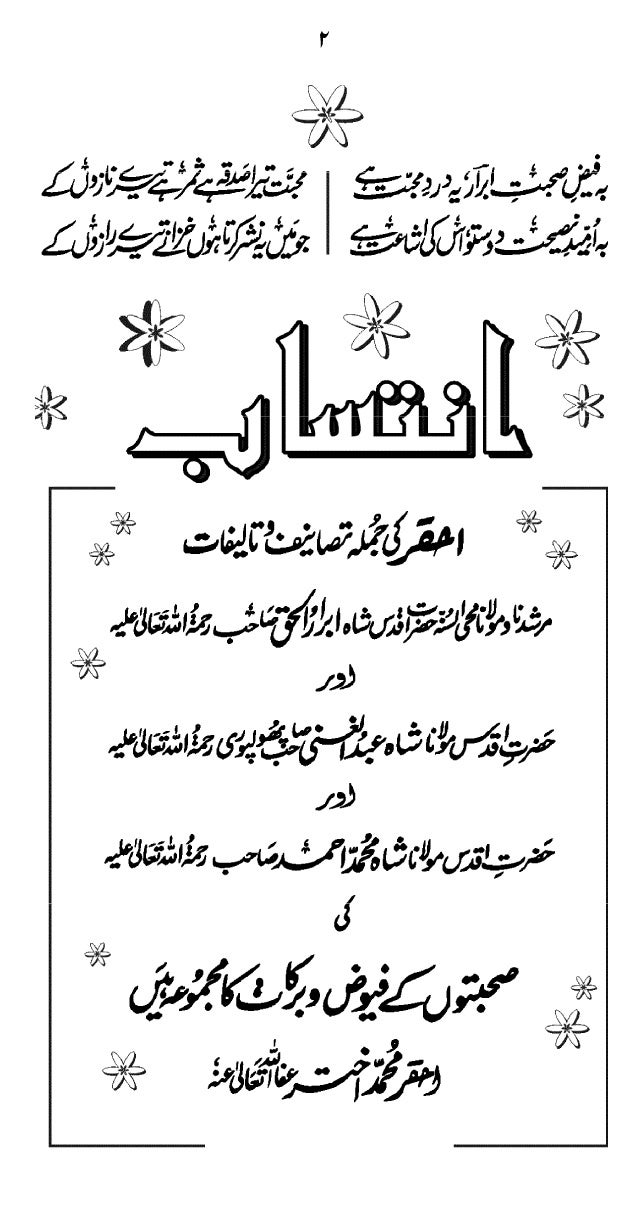 ۲
بہ فیضِ صحبتِ ابرارؔ یہ دردِ محبّت ہے | محبّت تیرا صدقہ ہے ثمر ہے تیرے نازوں کے
بہ اُمّیدِ نصیحت دوستو اس کی اشاعت ہے | جو میں یہ نشر کرتا ہوں خزانے تیرے رازوں کے
انتساب
احقر کی جُملہ تصانیف و تالیفات
مرشدنا و مولانا محی السنّہ حضرت اقدس شاہ ابرارُ الحق صاحب رحمۃُ اللہ تعالیٰ علیہ
اور
حضرتِ اقدس مولانا شاہ عبدُ الغنی صاحب پُھولپوری رحمۃُ اللہ تعالیٰ علیہ
اور
حضرتِ اقدس مولانا شاہ مُحمّد احمد صاحب رحمۃُ اللہ تعالیٰ علیہ
کی
صحبتوں کے فیوض و برکات کا مجموعہ ہیں
احقر مُحمّد اختر عفا اللہ تعالیٰ عنہٗ